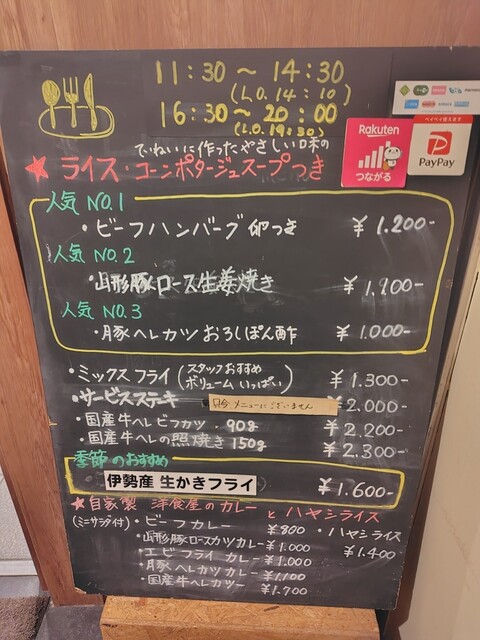 11:30～14:30
(L.O.14:10)
16:30～20:00
(L.O.19:30)
ていねいに作ったやさしい口味の
★ライス・コーンポタージュスープつき
Rakuten
つながる
ペイペイ使えます
PayPay
人気 NO.1
・ビーフハンバーグ 卵つき ¥1.200-
人気 NO.2
・山形豚ロース生姜焼き ¥1,200-
人気 NO.3
・豚ヘレカツおろしぽん酢 ¥1.000-
・ミックスフライ(スタッフおすすめ ボリュームいっぱい) ¥1.300-
・サービスステキ 只今メニューにございません ¥2.000-
・国産牛ヘレビフカツ 90g ¥2.200-
・国産牛ヘレの照焼き 150g ¥2.300-
季節のおすすめ
伊勢産 生かきフライ ¥1.600-
★自家製 洋食屋のカレーとハヤシライス
(ミニサラダ付)・ビーフカレー ¥800 ・ハヤシライス
・山形豚ロースカツカレー ¥1.000 ¥1.400
・エビフライカレー ¥1.000
・豚ヘレカツカレー ¥1,100
・国産牛ヘレカツー ¥1.700